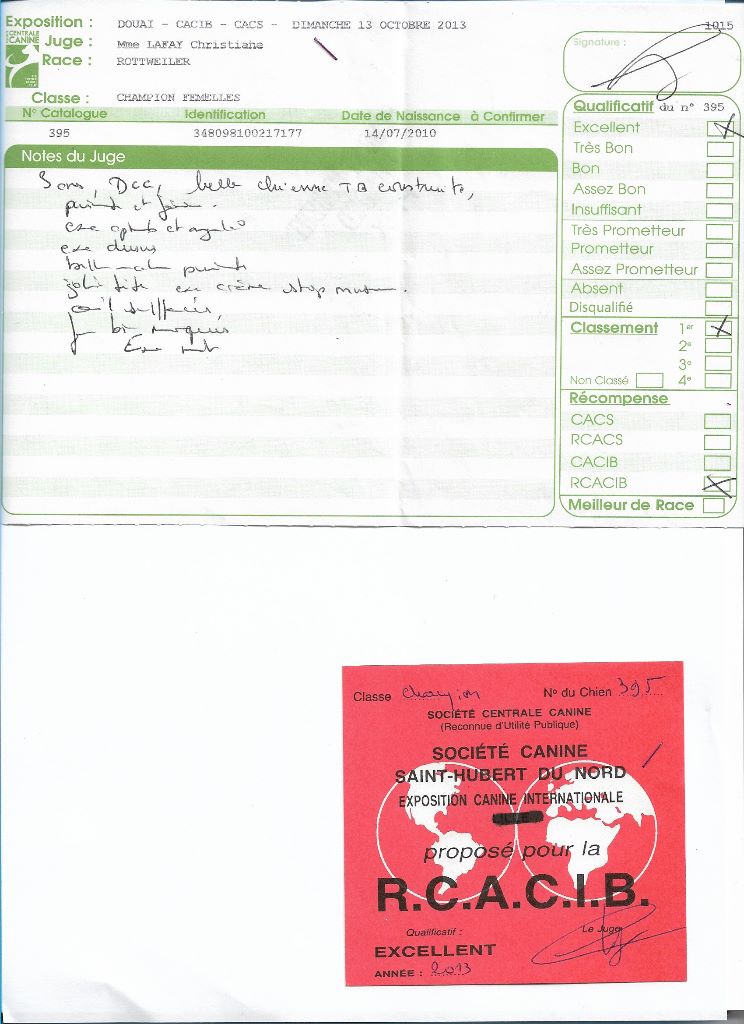 Exposition : DOUAI - CACIB - CACS - DIMANCHE 13 OCTOBRE 2013
1015
CENTRALE CANINE
Juge : Mme LAFAY Christiane
Race : ROTTWEILER
Classe : CHAMPION FEMELLES
N° Catalogue Identification Date de Naissance à Confirmer
395 348098100217177 14/07/2010
Notes du Juge
belle chienne TB construite,
exc
exc dessus
exc crâne stop
Signature :
Qualificatif du n° 395
Excellent
Très Bon
Bon
Assez Bon
Insuffisant
Très Prometteur
Prometteur
Assez Prometteur
Absent
Disqualifié
Classement 1er
2e
3e
Non Classé 4e
Récompense
CACS
RCACS
CACIB
RCACIB
Meilleur de Race
Classe Champion N° du Chien 395
SOCIÉTÉ CENTRALE CANINE
(Reconnue d'Utilité Publique)
SOCIÉTÉ CANINE
SAINT-HUBERT DU NORD
EXPOSITION CANINE INTERNATIONALE
proposé pour la
R.C.A.C.I.B.
Qualificatif : Le Juge
EXCELLENT
ANNÉE : 2013